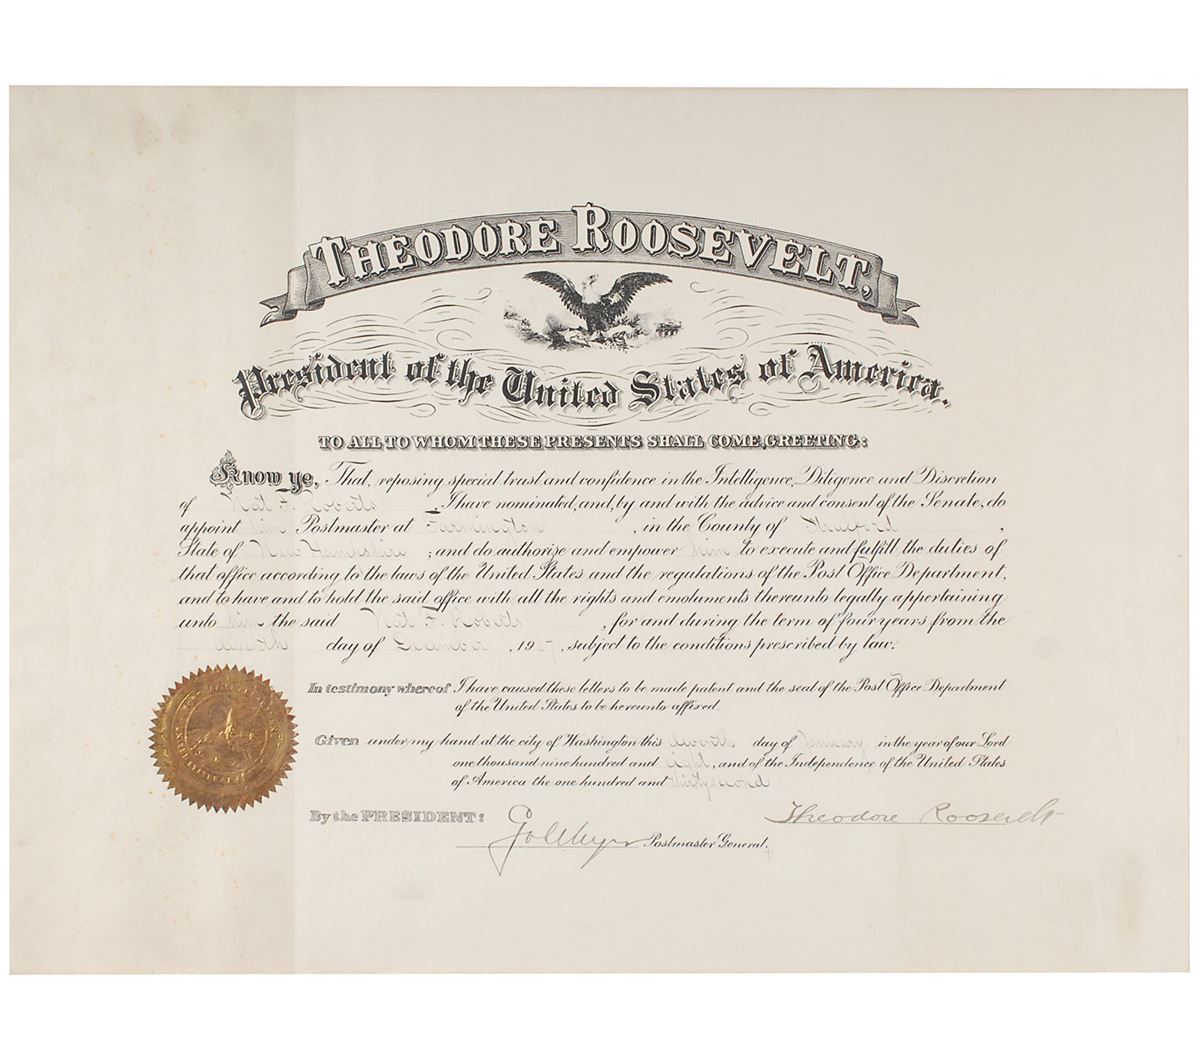 THEODORE ROOSEVELT,
President of the United States of America.
TO ALL TO WHOM THESE PRESENTS SHALL COME, GREETING:
Know ye, That, reposing special trust and confidence in the Intelligence, Diligence and Discretion
of Nat F. Roberts, I have nominated, and, by and with the advice and consent of the Senate, do
appoint him Postmaster at Farmington, in the County of Strafford,
State of New Hampshire; and do authorize and empower him to execute and fulfill the duties of
that office according to the laws of the United States and the regulations of the Post Office Department,
and to have and to hold the said office with all the rights and emoluments thereunto legally appertaining
unto him the said Nat F. Roberts, for and during the term of four years from the
day of December, 1907, subject to the conditions prescribed by law.
In testimony whereof I have caused these letters to be made patent and the seal of the Post Office Department
of the United States to be hereunto affixed.
Given under my hand, at the city of Washington this day of January in the year of our Lord
one thousand nine hundred and eight, and of the Independence of the United States
of America the one hundred and thirty second
By the PRESIDENT: Theodore Roosevelt
GvLMeyer Postmaster General.